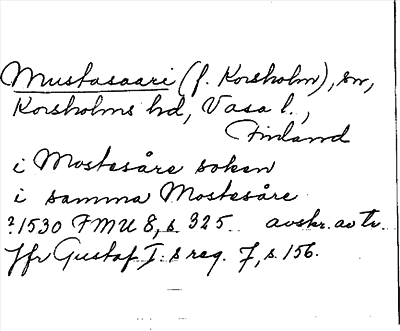 Mustasaari (f. Korsholm), sn,
Korsholms hd, Vasa l.,
Finland
i Mostesåre soken
i samma Mostesåre
?1530 FMU 8, s. 325. avskr. av tr.
Jfr Gustaf I:s reg. 7, s. 156.